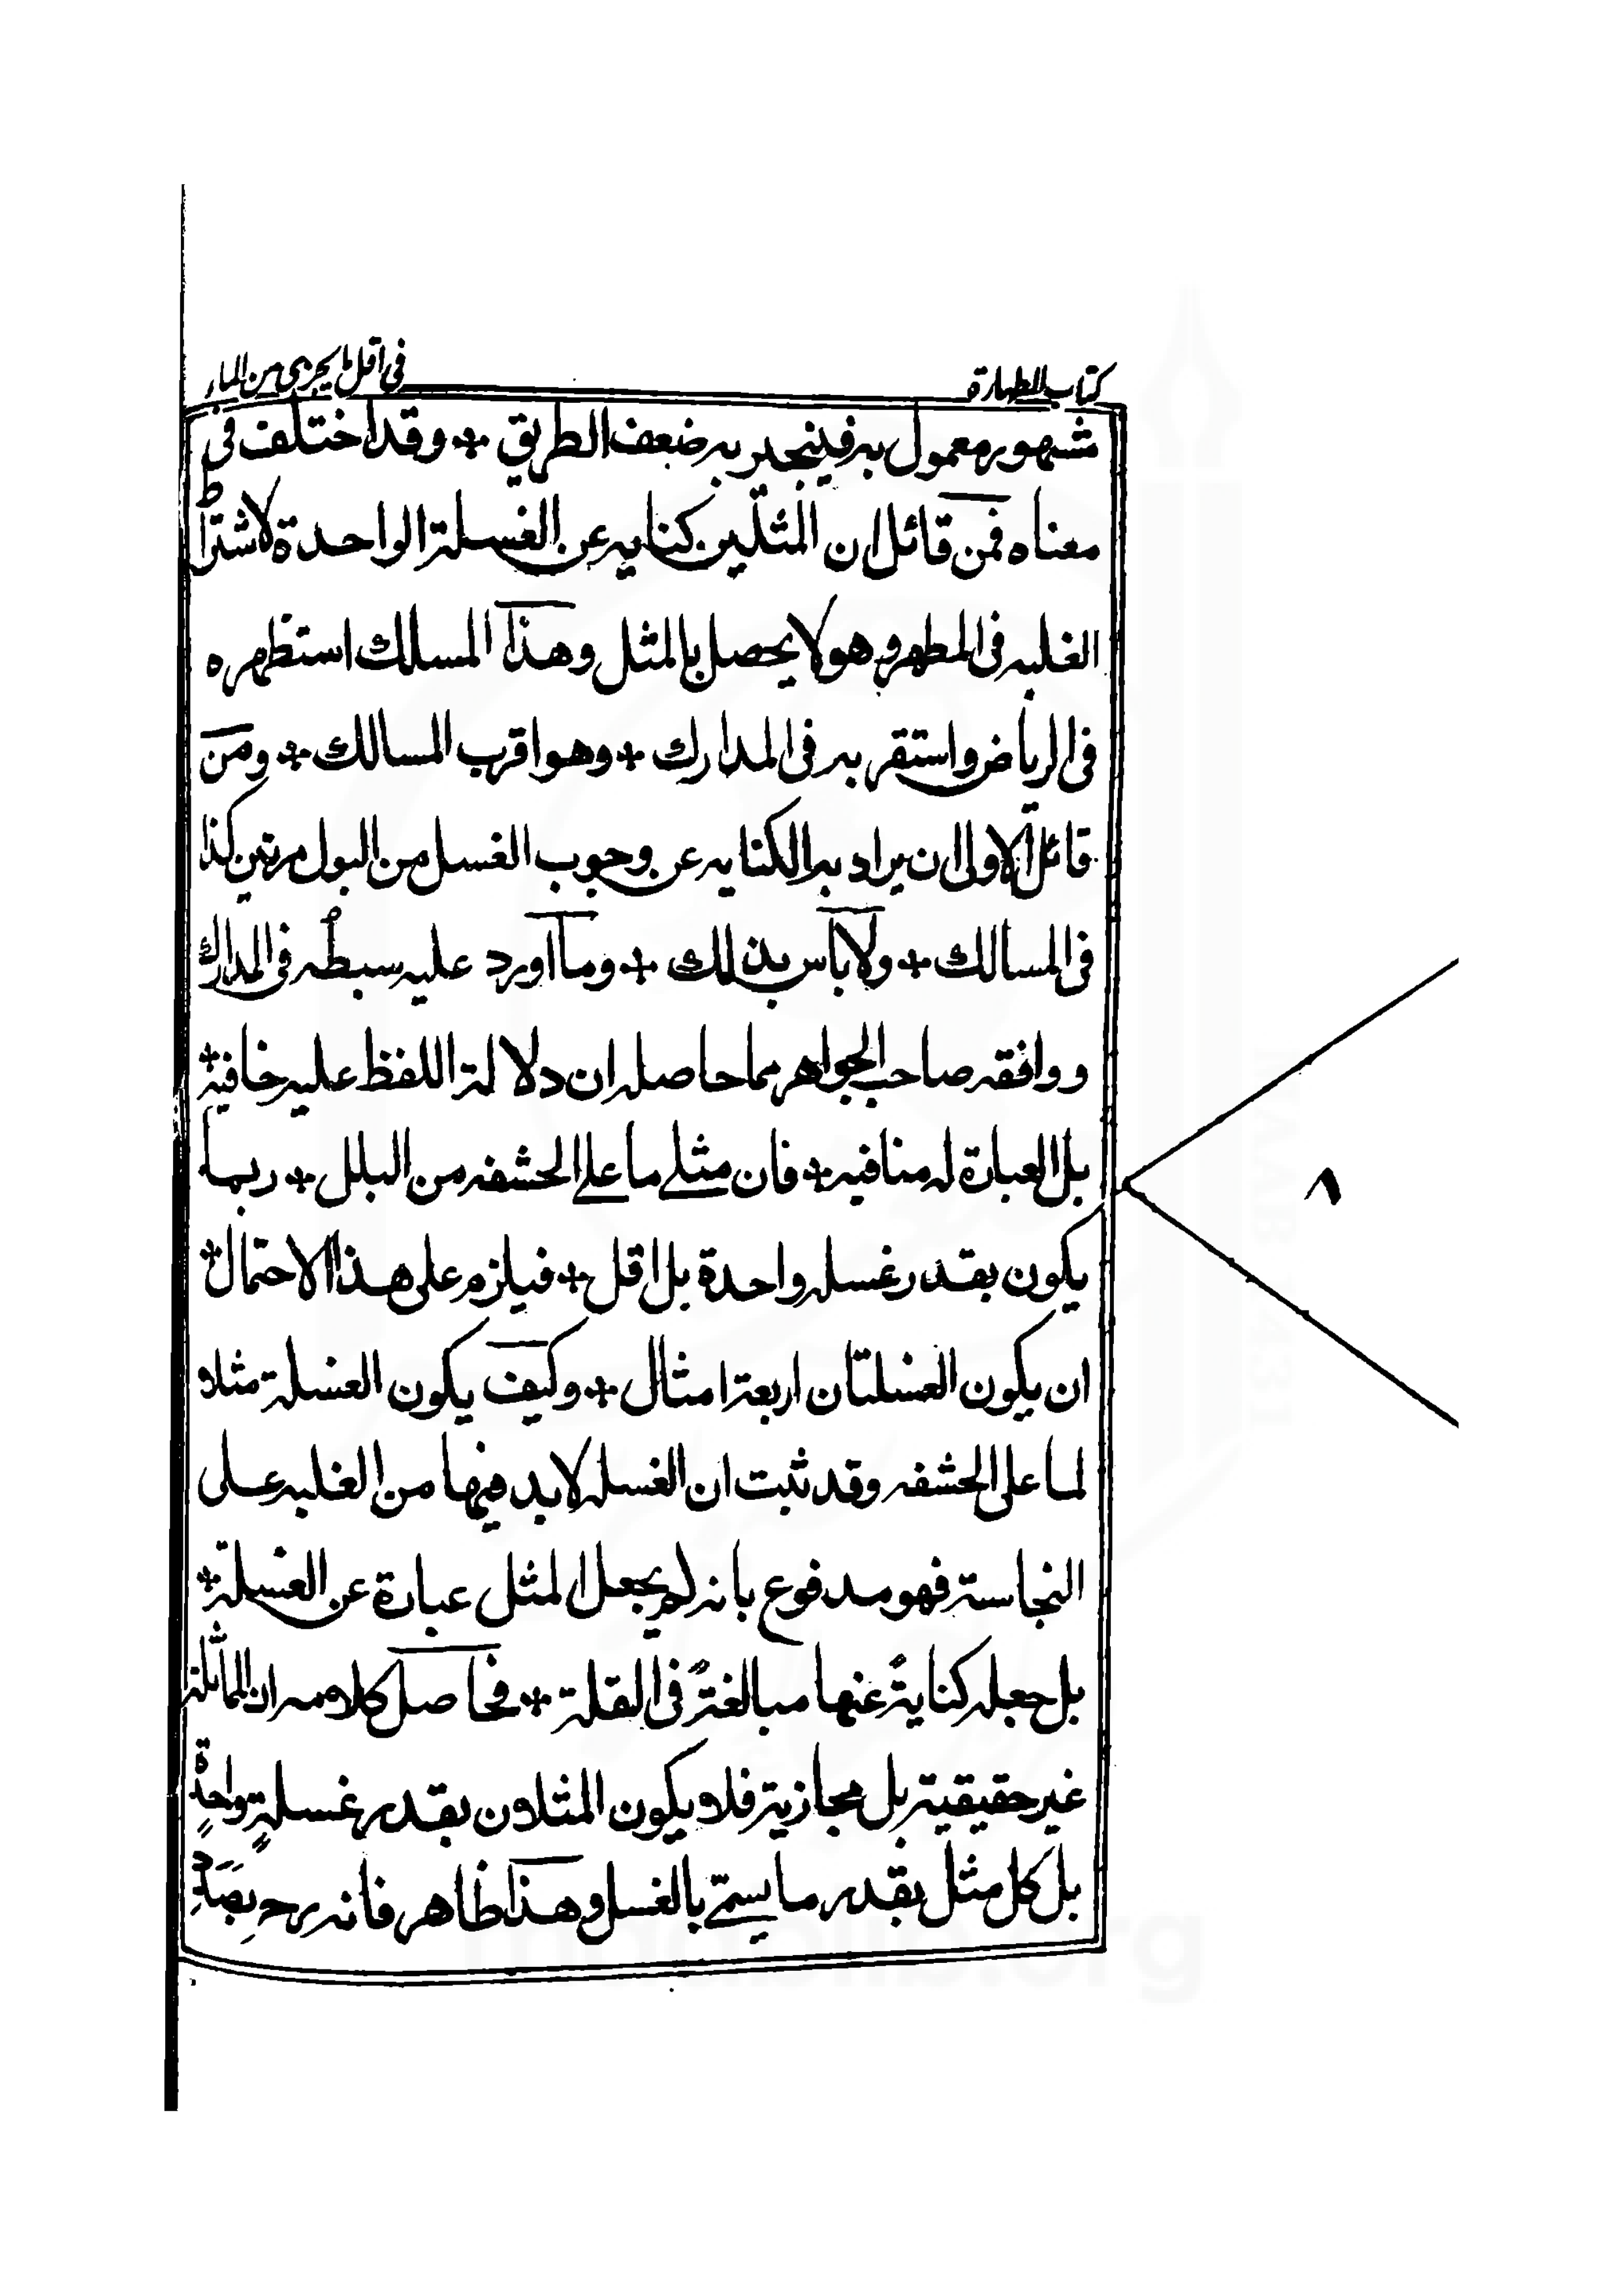 كتاب الطهارة
في اقل ما يجزي من الماء
مشهور معمول به فينجبر به ضعف الطريق + وقد اختلف في
معناه فمن قائل ان المثلين كنايه عن الغسلة الواحدة لاشتراط
الغلبه في المطهر وهو لا يحصل بالمثل وهذا المسلك استظهره
في الرياض واستقر به في المدارك + وهو اقرب المسالك + ومن
قائل الاولى ان يراد به الكنايه عن وجوب الغسل من البول مرتين كذا
في المسالك + ولا باس بذلك + وما اورد عليه سبطه في المدارك
ووافقه صاحب الجواهر مما حاصله ان دلالة اللفظ عليه خافية +
بل العبارة له منافيه + فان مثلي ما علي الحشفه من البلل + ربما
يكون بقدر غسله واحدة بل اقل + فيلزم على هذا الاحتمال +
ان يكون الغسلتان اربعة امثال + وكيف يكون الغسلة مثلا
لما على الحشفه وقد ثبت ان الغسله لا بد فيها من الغلبه على
النجاسة فهو مدفوع بانه لم يجعل المثل عبارة عن الغسلة +
بل جعله كنايةً عنها مبالغةً في القلة + فحاصل كلامه ان المماثلة
غير حقيقية بل مجازية فلا يكون المثلان بقدر غسلةٍ واحدةٍ
بل كل مثل بقدر ما يسمّي بالغسل وهذا ظاهر فانه رح بصَدَدِ
٨